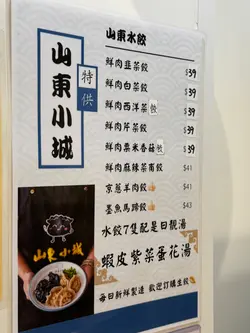 山東小城
特供
山東水餃
鮮肉韭菜餃 $39
鮮肉白菜餃 $39
鮮肉西洋菜餃 $39
鮮肉芹菜餃 $39
鮮肉粟米香菇餃 $39
鮮肉麻辣菜南餃 $41
京蔥羊肉餃 $41
墨魚馬蹄餃 $43
水餃7隻配是日靚湯
蝦皮紫菜蛋花湯
每日新鮮製造 歡迎訂購生餃
山東小城